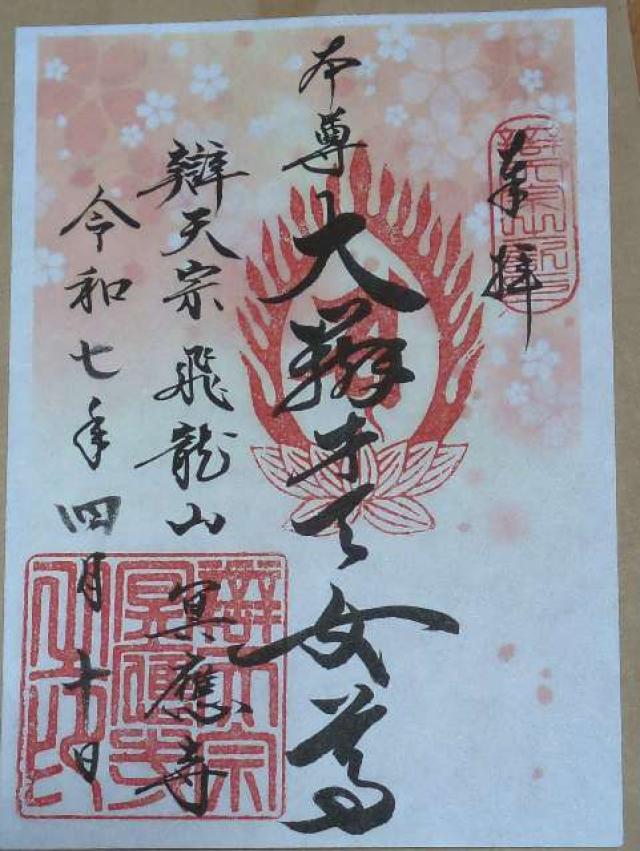 奉拝
本尊 大辯才天女尊
辯天宗 飛龍山 冥應寺
令和七年四月十日